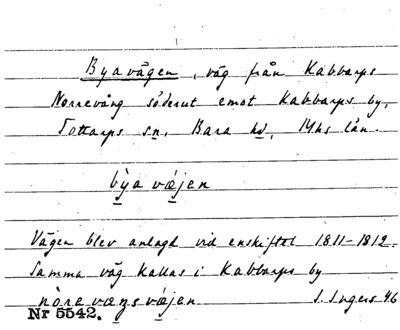 Byavägen, väg från Kabbarps
Norrevång söderut emot Kabbarps by,
Tottarps sn, Bara hd, Mhs län.
bỳa væjen
Vägen blev anlagd vid enskiftet 1811-1812.
Samma väg kallas i Kabbarps by
nòrevæŋsvæjen. I. Ingers 46
Nr 5542.